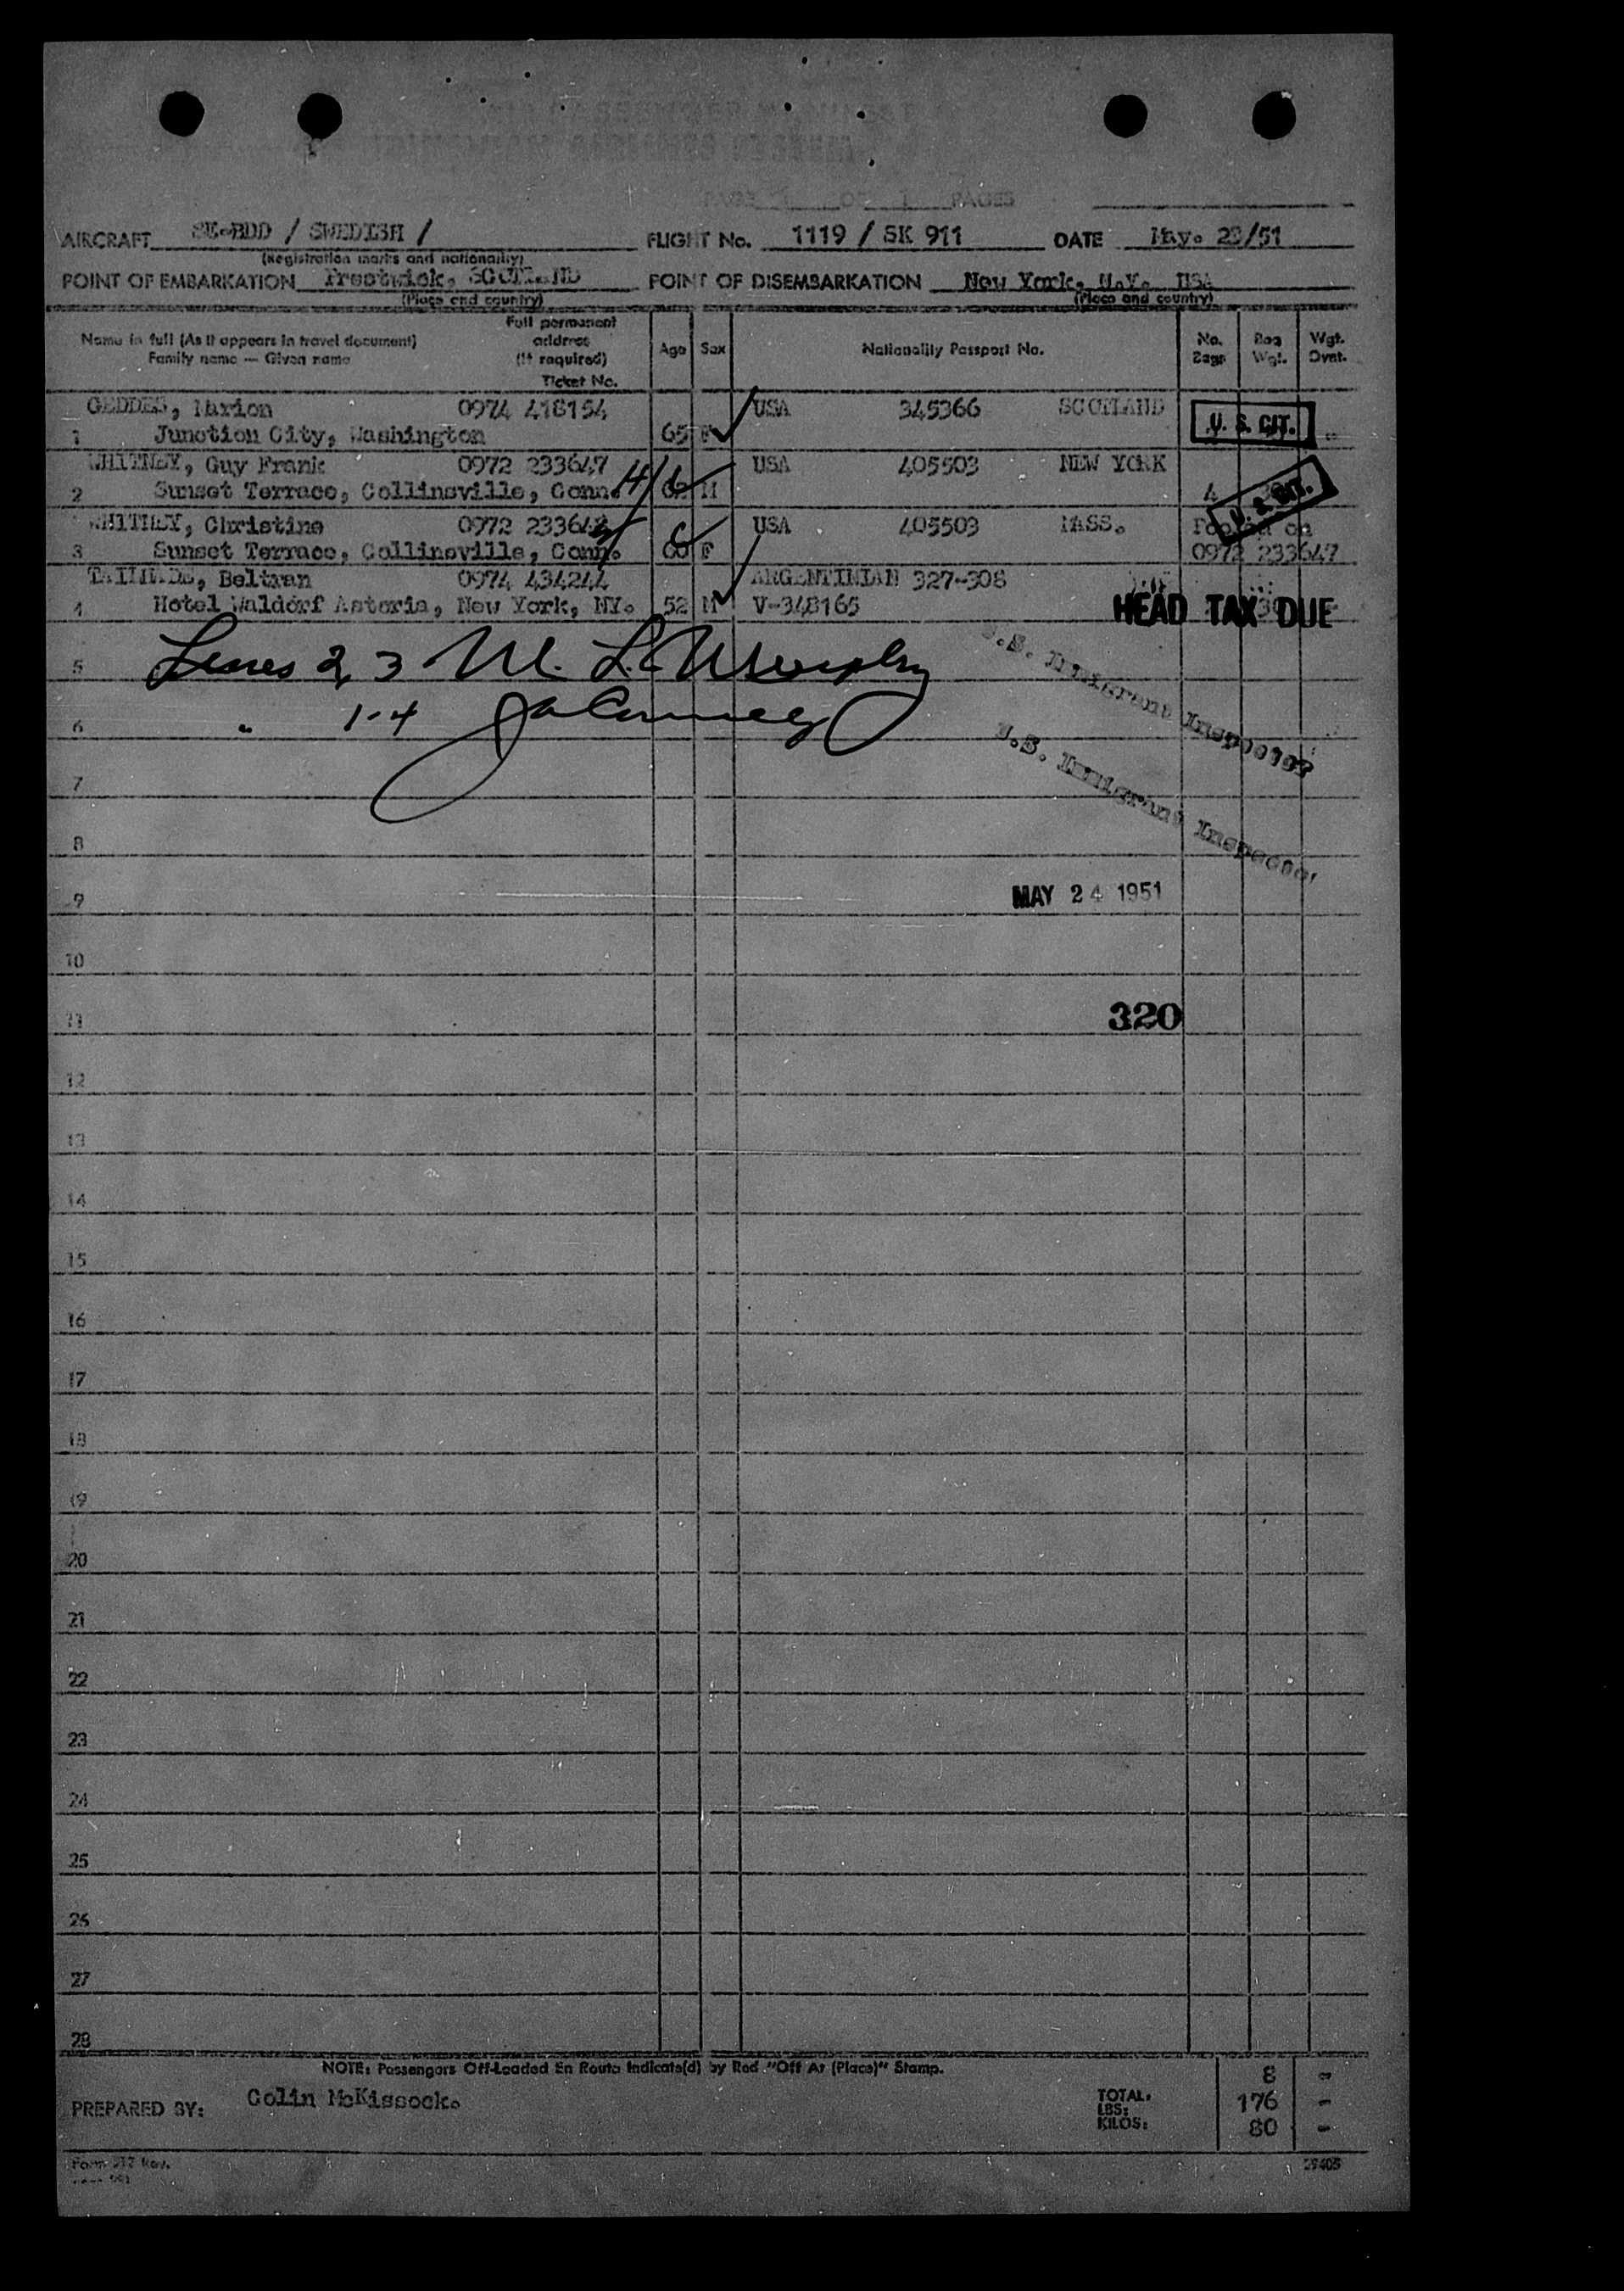 PAGE 1 OF 1 PAGES
AIRCRAFT SE-BDD / SWEDISH / FLIGHT No. 1119 / SK 911 DATE May. 23/51
(Registration marks and nationality)
POINT OF EMBARKATION Prestwick, SCOTLAND POINT OF DISEMBARKATION New York, N.Y. USA
(Place and country) (Place and country)
Name in full (As it appears in travel document) Family name — Given name Full permanent address (If required) Ticket No. Age Sex Nationality Passport No. No. Bags Bag Wgt. Wgt. Ovnt.
GEDDES, Marion 0974 418154 USA 345366 SCOTLAND U. S. CIT.
1 Junction City, Washington 65 F
WHITNEY, Guy Frank 0972 233647 USA 405503 NEW YORK U. S. CIT.
2 Sunset Terrace, Collinsville, Conn. M 4
WHITNEY, Christine 0972 233648 USA 405503 MASS. Pooled on
3 Sunset Terrace, Collinsville, Conn. 60 F 0972 233647
TAILHADE, Beltran 0974 434244 ARGENTINIAN 327-308
4 Hotel Waldorf Astoria, New York, NY. 52 M V-348165 HEAD TAX DUE
5 Lines 2, 3 M. L. Murphy U.S. Immigrant Inspector
6 " 1-4 U.S. Immigrant Inspector
7
8
9 MAY 24 1951
10
11 320
12
13
14
15
16
17
18
19
20
21
22
23
24
25
26
27
28
NOTE: Passengers Off-Loaded En Route Indicate(d) by Red "Off At (Place)" Stamp.
PREPARED BY: Colin McKissock.
TOTAL: 8 -
LBS: 176 -
KILOS: 80 -
Form 317 Rev.
29405